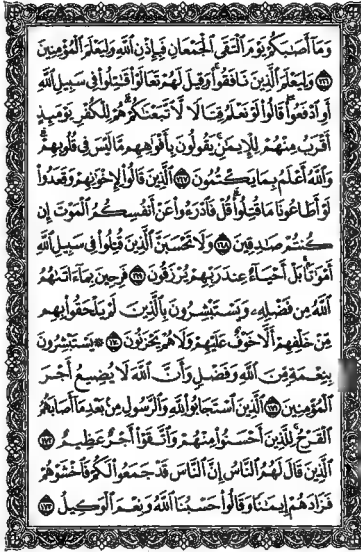 وَمَآ أَصَٰبَكُمْ يَوْمَ ٱلْتَقَى ٱلْجَمْعَانِ فَبِإِذْنِ ٱللَّهِ وَلِيَعْلَمَ ٱلْمُؤْمِنِينَ
١٦٦ وَلِيَعْلَمَ ٱلَّذِينَ نَافَقُوا۟ وَقِيلَ لَهُمْ تَعَالَوْا۟ قَٰتِلُوا۟ فِى سَبِيلِ ٱللَّهِ
أَوِ ٱدْفَعُوا۟ قَالُوا۟ لَوْ نَعْلَمُ قِتَالًا لَّٱتَّبَعْنَٰكُمْ هُمْ لِلْكُفْرِ يَوْمَئِذٍ
أَقْرَبُ مِنْهُمْ لِلْإِيمَٰنِ يَقُولُونَ بِأَفْوَٰهِهِم مَّا لَيْسَ فِى قُلُوبِهِمْ
وَٱللَّهُ أَعْلَمُ بِمَا يَكْتُمُونَ ١٦٧ ٱلَّذِينَ قَالُوا۟ لِإِخْوَٰنِهِمْ وَقَعَدُوا۟
لَوْ أَطَاعُونَا مَا قُتِلُوا۟ قُلْ فَٱدْرَءُوا۟ عَنْ أَنفُسِكُمُ ٱلْمَوْتَ إِن
كُنتُمْ صَٰدِقِينَ ١٦٨ وَلَا تَحْسَبَنَّ ٱلَّذِينَ قُتِلُوا۟ فِى سَبِيلِ ٱللَّهِ
أَمْوَٰتًۢا بَلْ أَحْيَآءٌ عِندَ رَبِّهِمْ يُرْزَقُونَ ١٦٩ فَرِحِينَ بِمَآ ءَاتَىٰهُمُ
ٱللَّهُ مِن فَضْلِهِۦ وَيَسْتَبْشِرُونَ بِٱلَّذِينَ لَمْ يَلْحَقُوا۟ بِهِم
مِّنْ خَلْفِهِمْ أَلَّا خَوْفٌ عَلَيْهِمْ وَلَا هُمْ يَحْزَنُونَ ١٧٠ ۞ يَسْتَبْشِرُونَ
بِنِعْمَةٍ مِّنَ ٱللَّهِ وَفَضْلٍ وَأَنَّ ٱللَّهَ لَا يُضِيعُ أَجْرَ
ٱلْمُؤْمِنِينَ ١٧١ ٱلَّذِينَ ٱسْتَجَابُوا۟ لِلَّهِ وَٱلرَّسُولِ مِنۢ بَعْدِ مَآ أَصَابَهُمُ
ٱلْقَرْحُ لِلَّذِينَ أَحْسَنُوا۟ مِنْهُمْ وَٱتَّقَوْا۟ أَجْرٌ عَظِيمٌ ١٧٢
ٱلَّذِينَ قَالَ لَهُمُ ٱلنَّاسُ إِنَّ ٱلنَّاسَ قَدْ جَمَعُوا۟ لَكُمْ فَٱخْشَوْهُمْ
فَزَادَهُمْ إِيمَٰنًا وَقَالُوا۟ حَسْبُنَا ٱللَّهُ وَنِعْمَ ٱلْوَكِيلُ ١٧٣